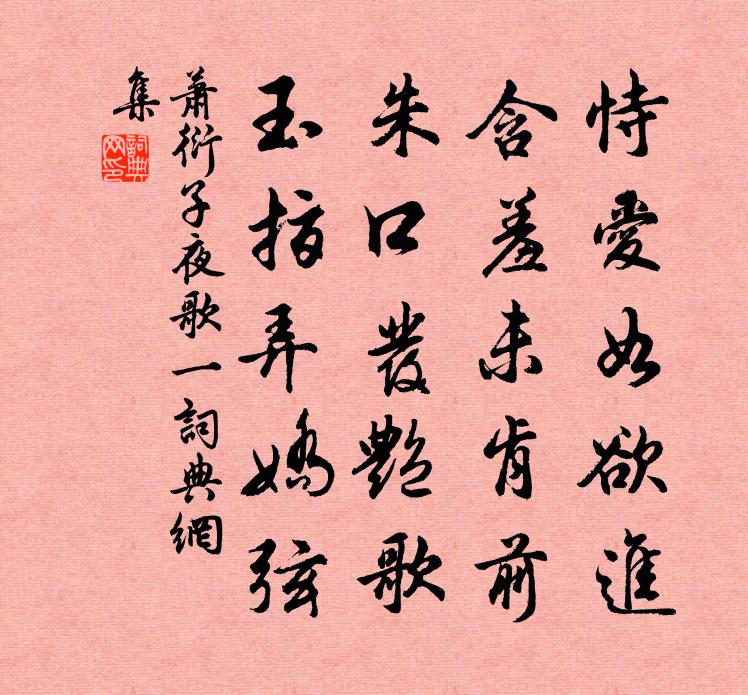 恃愛如欲進
含羞未肯前
朱口發艷歌
玉指弄嬌弦
蕭衍子夜歌一詞典網
集
詞典
網印